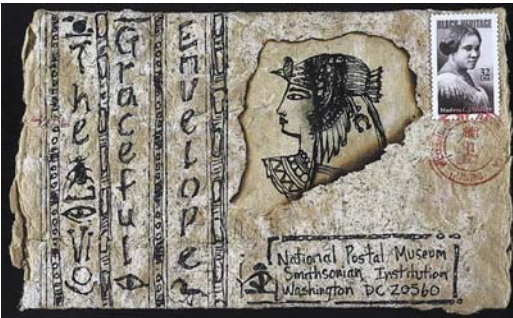 The
Graceful
Envelope
BLACK HERITAGE
32
USA
National Postal Museum
Smithsonian Institution
Washington DC 20560